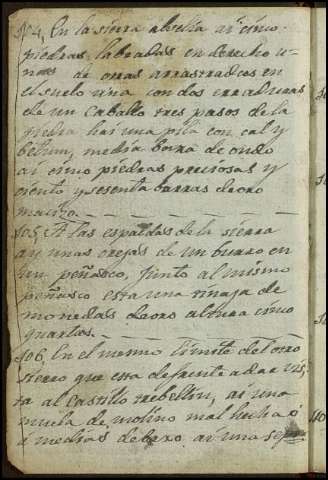 104, En la sierra abrelia ai cinco
piedras labradas en derecho u-
nas de otras arrastradas en
el suelo una con dos erraduras
de un Caballo tres pasos de la
piedra hai una pila con cal y
betum, media bara de ondo
ai cinco piedras preciosas y
ciento y sesenta barras de oro
macizo.
105, A las espaldas de la sierra
ay unas orejas de un burro en
un peñasco, Junto al mismo
peñasco esta una tinaja de
monedas de oro altura cinco
quartas.
106, En el mismo limite del otro
sierro que esta defrente a dar vis-
ta al Castillo rebellin, ai una
muela de molino mal hecha o
a medias debaxo ai una